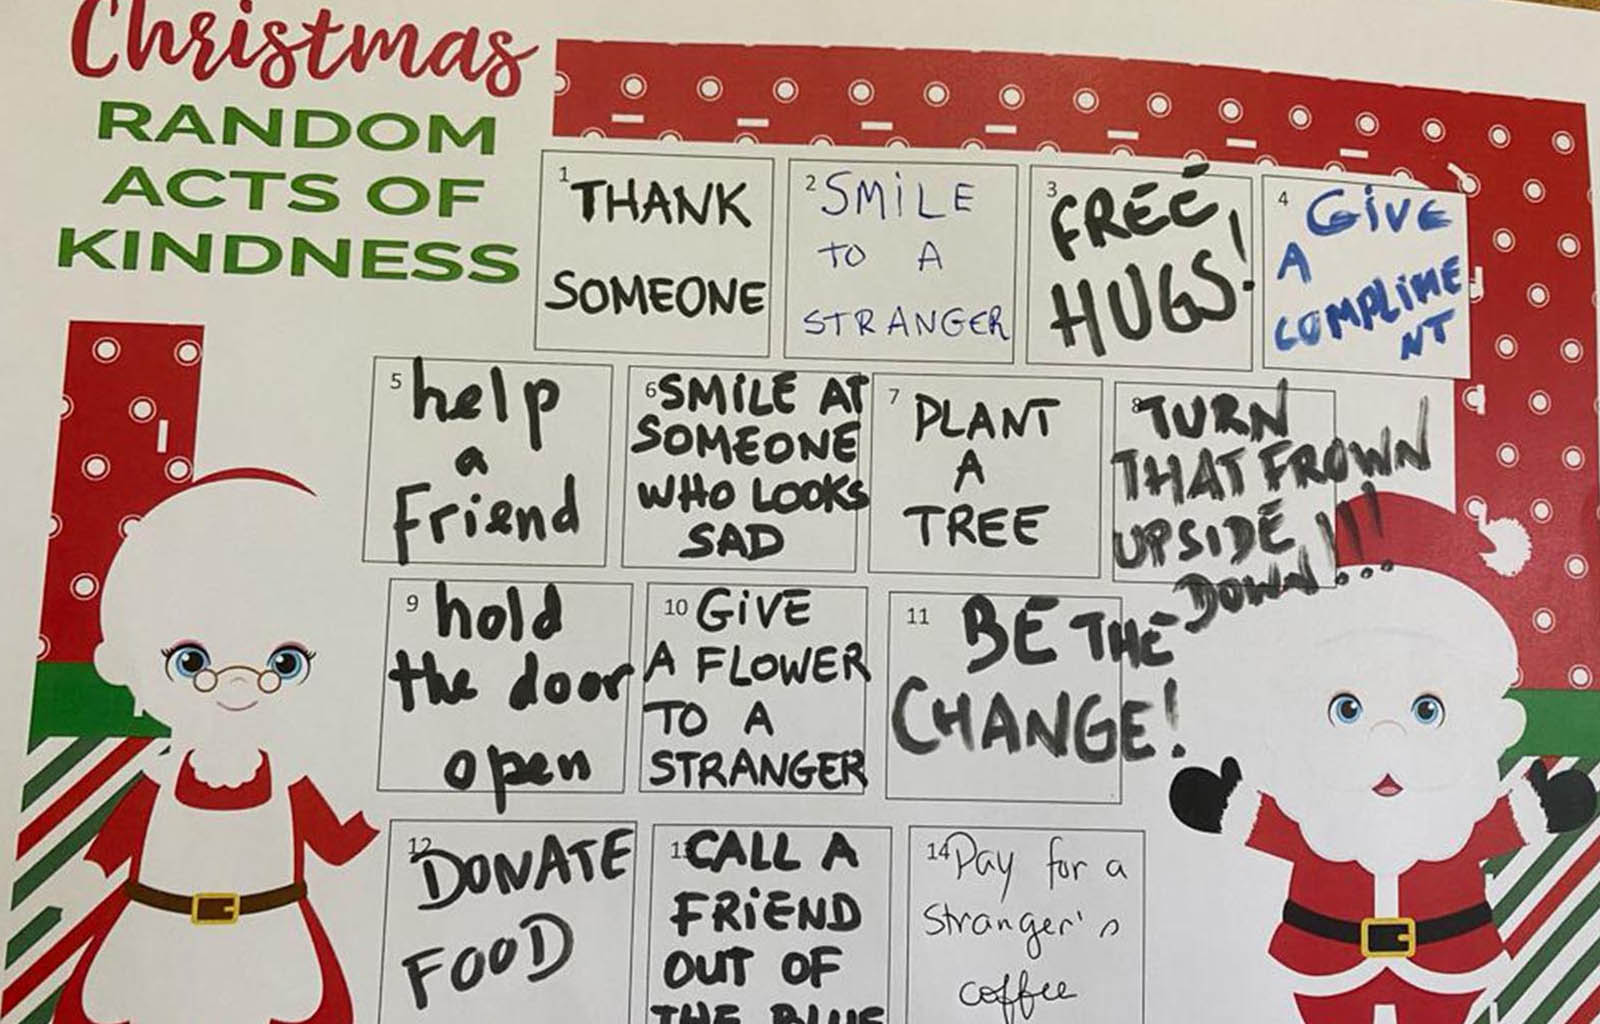 Christmas
RANDOM
ACTS OF
KINDNESS
1
THANK
SOMEONE
2
SMiLE
TO A
STRANGER
3
FREE
HUGS!
4
GiVE
A
COMPLiME
NT
5
help
a
Friend
6
SMiLE AT
SOMEONE
WHO LOOKS
SAD
7
PLANT
A
TREE
8
TURN
THAT FROWN
UPSIDE !!!
DOWN...
9
hold
the door
open
10
GiVE
A FLOWER
TO A
STRANGER
11
BE THE
CHANGE!
12
DONATE
FOOD
13
CALL A
FRiEND
OUT OF
THE BLUE
14
Pay for a
stranger's
coffee